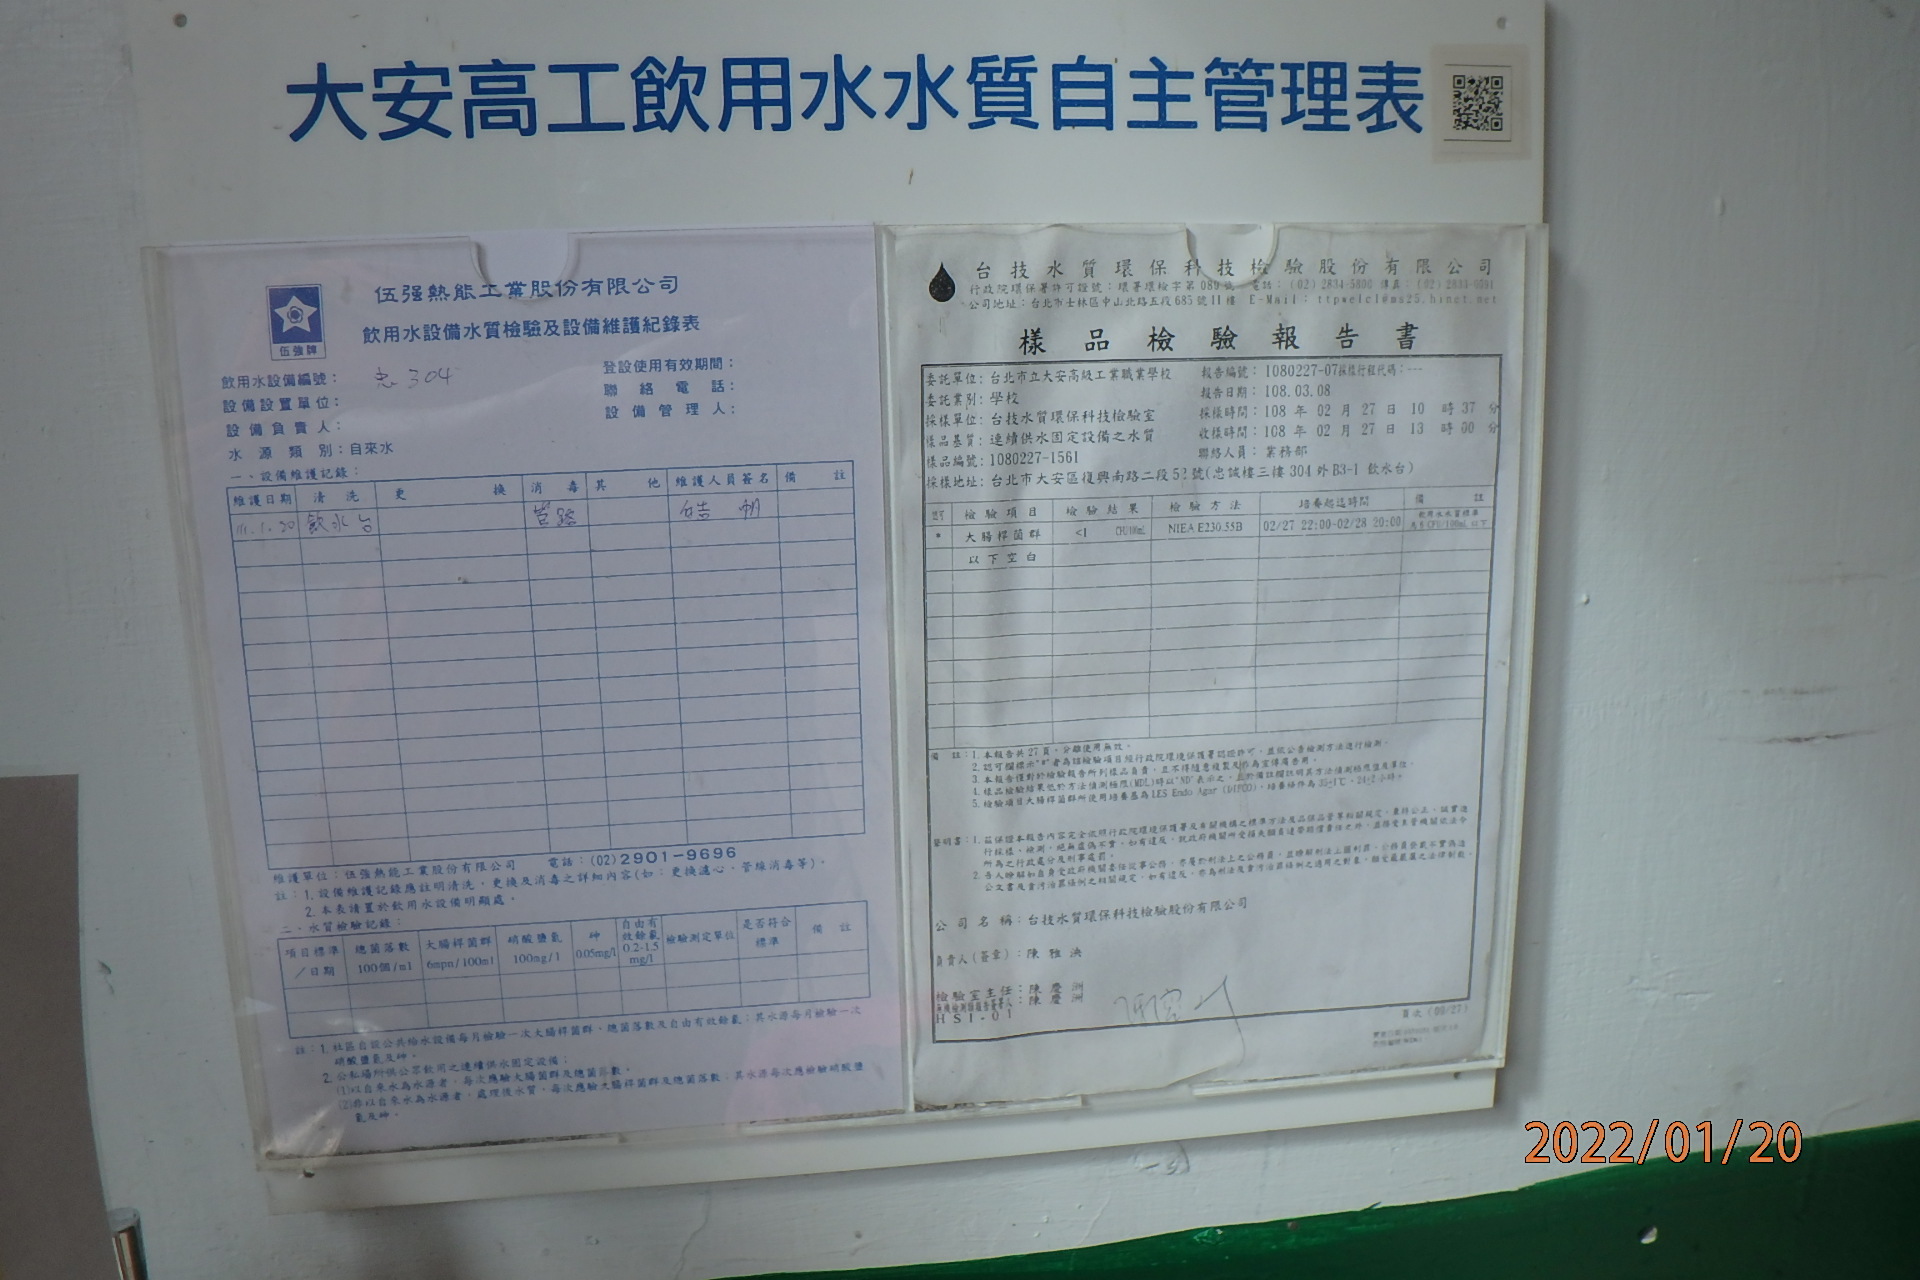 大安高工飲用水水質自主管理表
伍強牌
伍强熱能工業股份有限公司
飲用水設備水質檢驗及設備維護紀錄表
飲用水設備編號： 忠304
設備設置單位：
設備負責人：
水源類別：自來水
登設使用有效期間：
聯絡電話：
設備管理人：
一、設備維護記錄：
維護日期 清洗 更換 消毒 其他 維護人員簽名 備註
111.1.20 飲水台 管路
維護單位：伍强熱能工業股份有限公司 電話：(02)2901-9696
註：1. 設備維護記錄應註明清洗，更換及消毒之詳細內容(如：更換濾心，管線消毒等)。
2. 本表請置於飲用水設備明顯處。
二、水質檢驗記錄：
項目標準／日期 總菌落數 100個/ml 大腸桿菌群 6mpn/100ml 硝酸鹽氮 100mg/l 砷 0.05mg/l 自由有效餘氯 0.2-1.5 mg/l 檢驗測定單位 是否符合標準 備註
註：1. 社區自設公共給水設備每月檢驗一次大腸桿菌群、總菌落數及自由有效餘氯；其水源每月檢驗一次
硝酸鹽氮及砷。
2. 公私場所供公眾飲用之連續供水固定設備：
(1)以自來水為水源者，每次應驗大腸菌群及總菌落數。
(2)非以自來水為水源者，處理後水質，每次應驗大腸桿菌群及總菌落數，其水源每次應檢驗硝酸鹽
氮及砷。
台技水質環保科技檢驗股份有限公司
行政院環保署許可證號：環署環檢字第089號 電話：(02)2834-5800
公司地址：台北市士林區中山北路五段685號11樓
樣品檢驗報告書
委託單位：台北市立大安高級工業職業學校
委託業別：學校
採樣單位：台技水質環保科技檢驗室
樣品基質：連續供水固定設備之水質
樣品編號：1080227-1561
報告編號：1080227-07採樣行程代碼：---
報告日期：108.03.08
採樣時間：108 年 02 月 27 日 10 時 37 分
收樣時間：108 年 02 月 27 日 13 時 00 分
聯絡人員：業務部
採樣地址：台北市大安區復興南路二段52號(忠誠樓三樓304外B3-1飲水台)
認可 檢驗項目 檢驗結果 檢驗方法 培養起迄時間 備註
* 大腸桿菌群 <1 CFU/100mL NIEA E230.55B 02/27 22:00-02/28 20:00
以下空白
備註：1. 本報告共27頁，分離使用無效。
公司名稱：台技水質環保科技檢驗股份有限公司
負責人(簽章)：陳雅泱
檢驗室主任：陳慶洲
陳慶洲
HSI-01
2022/01/20